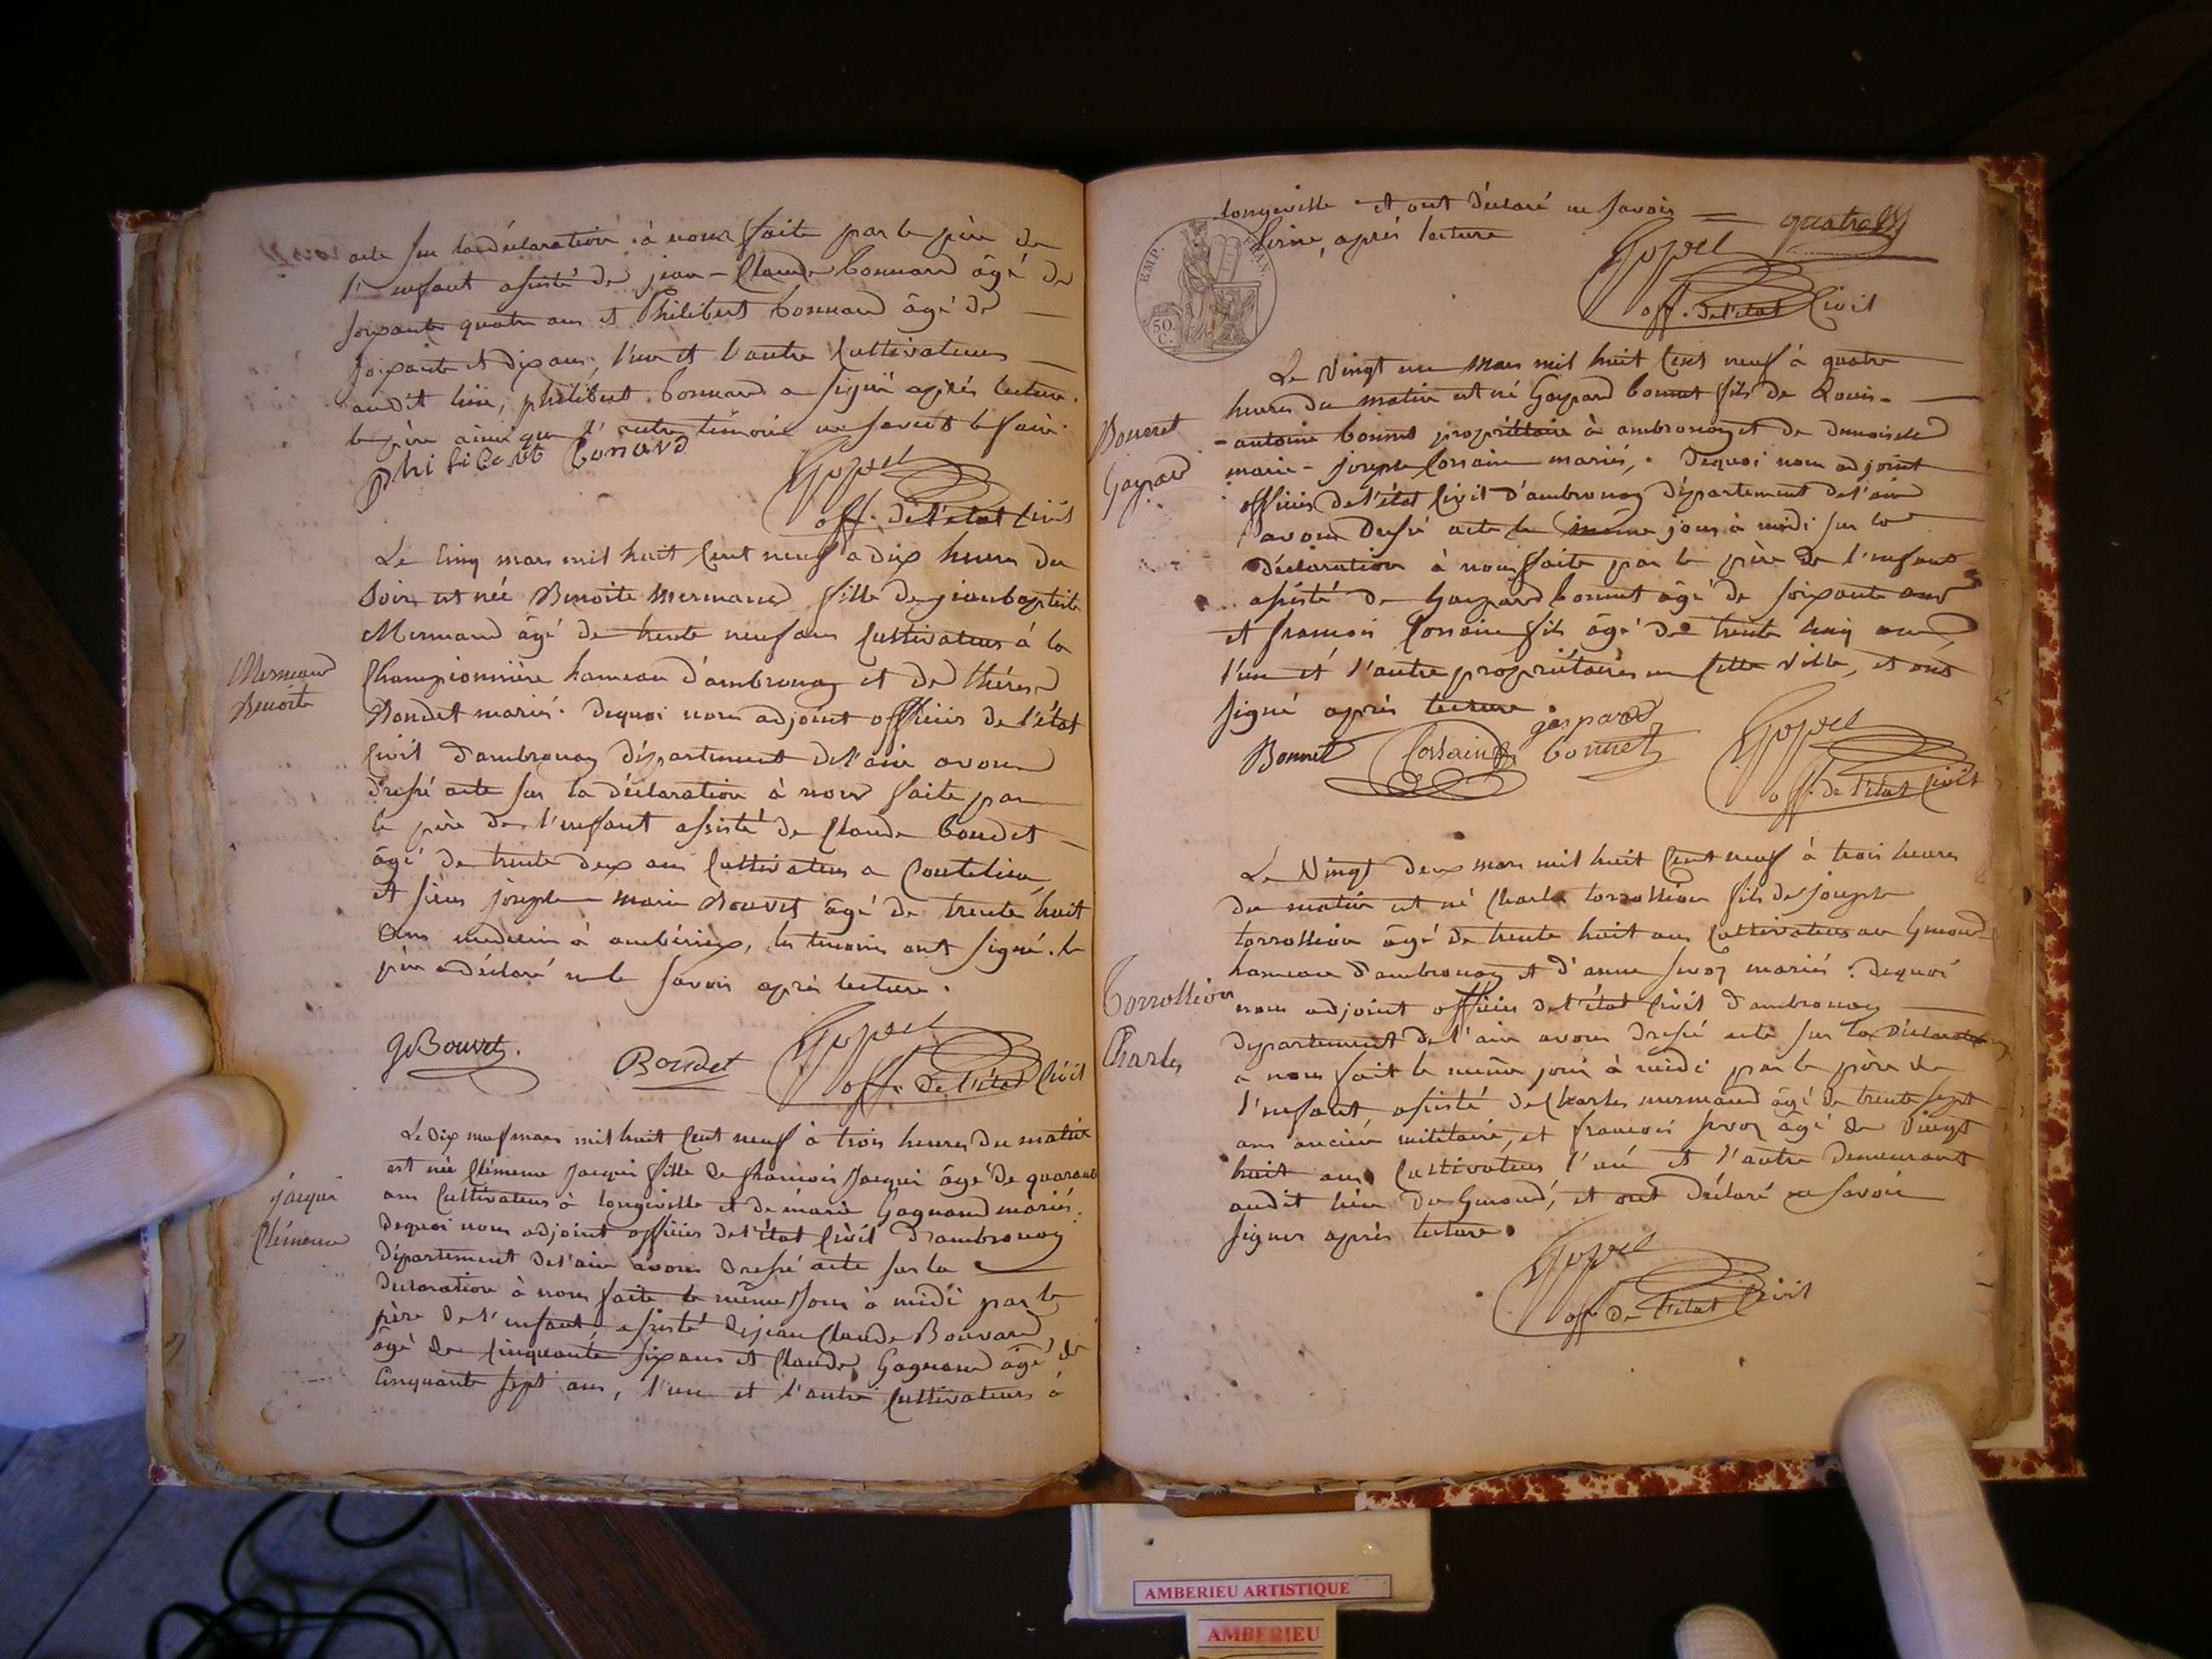 acte sur la déclaration à nous faite par le père de
l'enfant assisté de jean-Claude bonnard âgé de
soixante quatre ans et Philibert bonnard âgé de
soixante et dix ans, l'un et l'autre Cultivateurs
audit lieu, philibert bonnard a signé après lecture.
le père ainsi que l'autre témoin ne savent le faire.
Philibert bonard
off. de l'état Civil
Le Cinq mars mil huit Cent neuf a dix heures du
Soir est née Benoite Mermand fille de jeanbaptiste
Mermand âgé de trente neuf ans Cultivateur à la
Championnière hameau d'ambronay et de thérese
Boudet mariés. dequoi nous adjoint officier de l'état
Civil d'ambronay département de l'ain avons
dressé acte sur la déclaration à nous faite par
le père de l'enfant assisté de Claude boudet
âgé de trente deux ans Cultivateur a
et sieur joseph marie Bouvet âgé de trente huit
ans medecin à ambérieux, les temoins ont signé. le
père a déclaré ne le savoir après lecture.
Mermand
Benoite
Bouvet
Boudet
off. de l'état Civil
Le dix neuf mars mil huit Cent neuf à trois heures du matin
est née Clémence Jacqui fille de françois Jacqui âgé de quarante
ans Cultivateur à longeville et de marie Gagnand mariés.
dequoi nous adjoint officier de l'état Civil d'ambronay
département de l'ain avons dressé acte sur la
declaration à nous faite le même Jour à midi par le
père de l'enfant assisté de jean Claude Bouvard
âgé de Cinquante six ans et Claude Gagnand âgé de
Cinquante sept ans, l'un et l'autre Cultivateurs à
jacqui
Clémence
longeville et ont déclaré ne savoir
signer, après lecture
quatre
EMP. FRAN.
50 C.
off. de l'état Civil
Le Vingt un Mars mil huit Cent neuf à quatre
heures du matin est né Gaspard bonnet fils de Louis-
-antoine bonnet propriétaire à ambronay et de demoiselle
marie-joseph Corsain mariés. dequoi nous adjoint
officier de l'état Civil d'ambronay département de l'ain
avons dressé acte le même jour à midi sur la
déclaration à nous faite par le père de l'enfant
assisté de Gaspard bonnet âgé de soixante ans
et françois Corsain fils âgé de trente cinq ans
l'un et l'autre propriétaires en Cette Ville, et ont
signé après lecture
Bonnet
Gaspard
Bonnet Corsain gaspard bonnet
off. de l'état Civil
Le Vingt deux mars mil huit Cent neuf à trois heures
du matin est né Charles torrollion fils de joseph
torrollion âgé de trente huit ans Cultivateur au
hameau d'ambronay et d'anne mariés. dequoi
nous adjoint officier de l'état Civil d'ambronay
departement de l'ain avons dressé acte sur la déclaration
a nous fait le même jour à midi par le père de
l'enfant assisté de Charles mermand âgé de trente sept
ans ancien militaire, et françois âgé de Vingt
huit ans Cultivateur l'un et l'autre demeurant
audit lieu du et ont déclaré ne savoir
signer après lecture.
Torrollion
Charles
off. de l'état Civil
AMBERIEU ARTISTIQUE
AMBERIEU